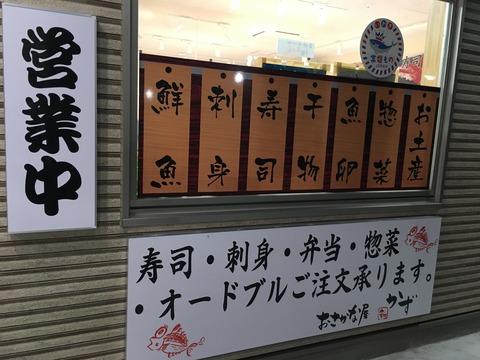 営業中
鮮魚
刺身
寿司
干物
魚卵
惣菜
お土産
寿司・刺身・弁当・惣菜
・オードブルご注文承ります。
おさかな屋 かず